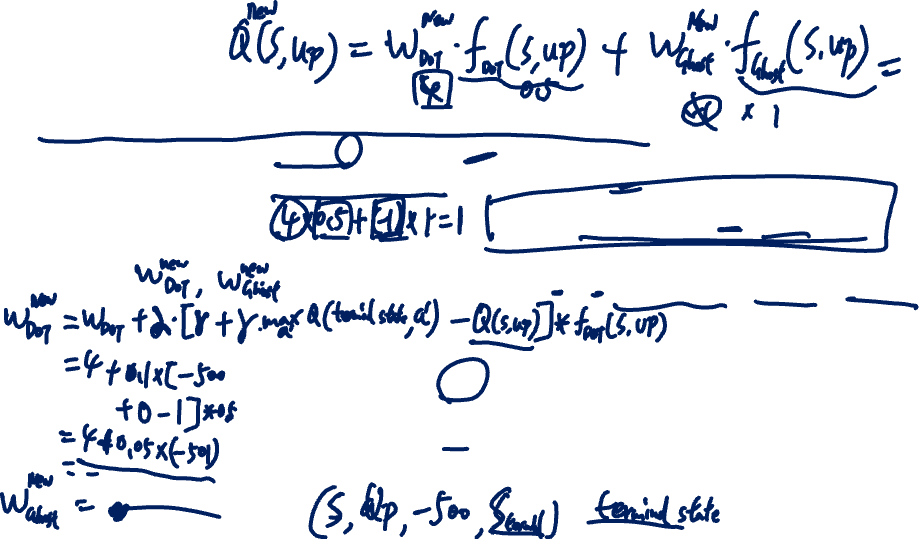 Q^new(S, up) = W_DOT^New · f_DOT(S, up) + W_Ghost^New · f_Ghost(S, up) =
4 0.5 × 1
4 × 0.5 + (-1) × 1 = 1
W_DOT^new, W_Ghost^new
W_DOT^New = W_DOT + α · [r + γ · max_a' Q(terminal state, a') - Q(s, up)] * f_DOT(S, up)
= 4 + 0.1 × [-500
+ 0 - 1] * 0.5
= 4 + 0.05 × (-501)
W_Ghost^New =
(S, up, -500, S_terminal) terminal state